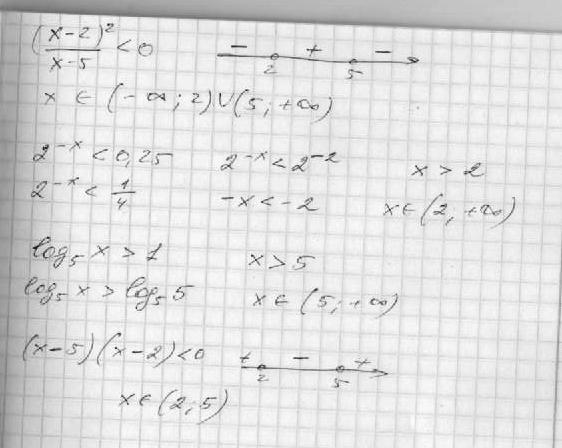 (x-2)²/(x-5) < 0   -   +   -
2   5
x ∈ (-∞; 2) ∪ (5; +∞)
2^(-x) < 0,25   2^(-x) < 2^(-2)   x > 2
2^(-x) < 1/4   -x < -2   x ∈ (2, +∞)
log₅ x > 1   x > 5
log₅ x > log₅ 5   x ∈ (5; +∞)
(x-5)(x-2) < 0   +   -   +
2   5
x ∈ (2; 5)